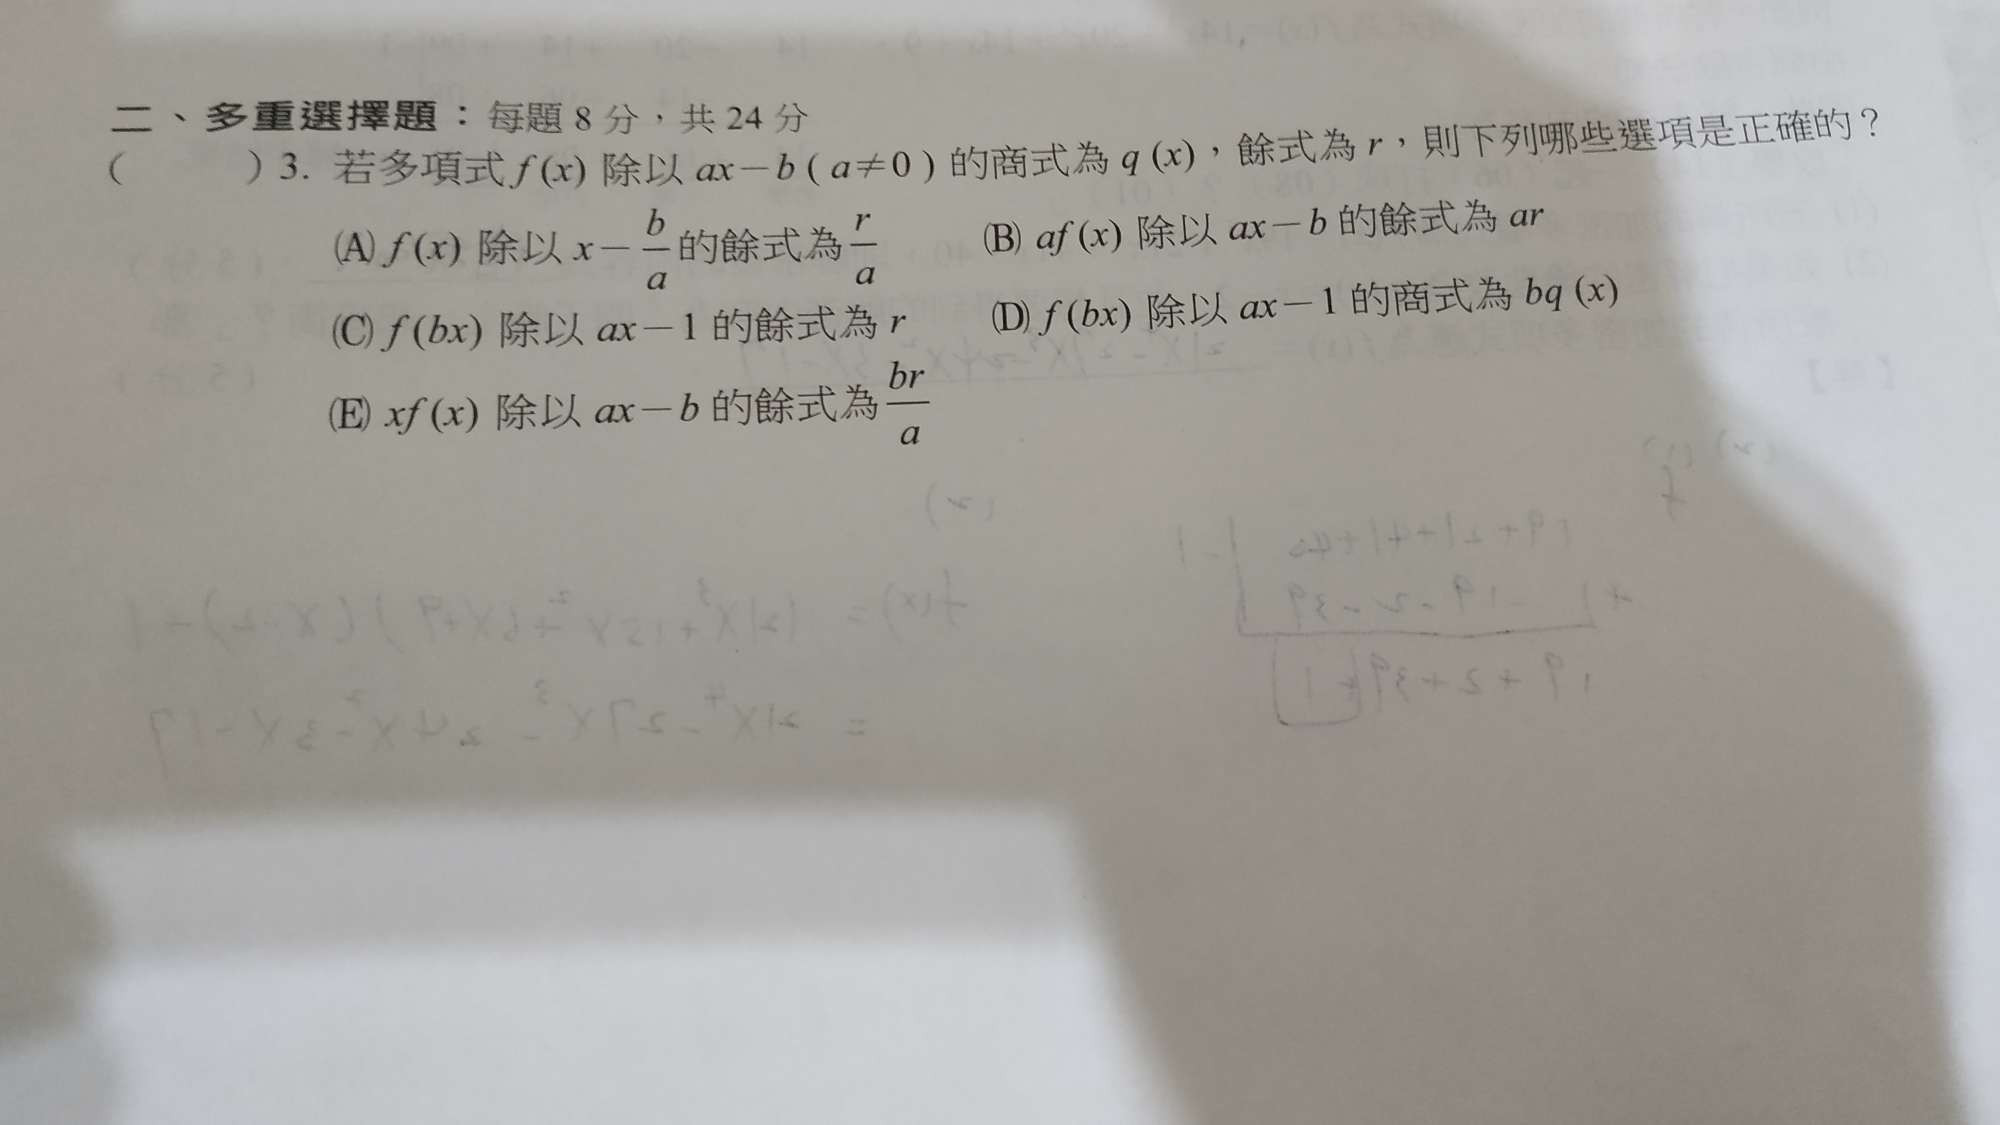 二、多重選擇題：每題 8 分，共 24 分
(　　) 3. 若多項式 f (x) 除以 ax－b ( a≠0 ) 的商式為 q (x)，餘式為 r，則下列哪些選項是正確的？
(A) f (x) 除以 x－b/a 的餘式為 r/a　(B) af (x) 除以 ax－b 的餘式為 ar
(C) f (bx) 除以 ax－1 的餘式為 r　(D) f (bx) 除以 ax－1 的商式為 bq (x)
(E) xf (x) 除以 ax－b 的餘式為 br/a